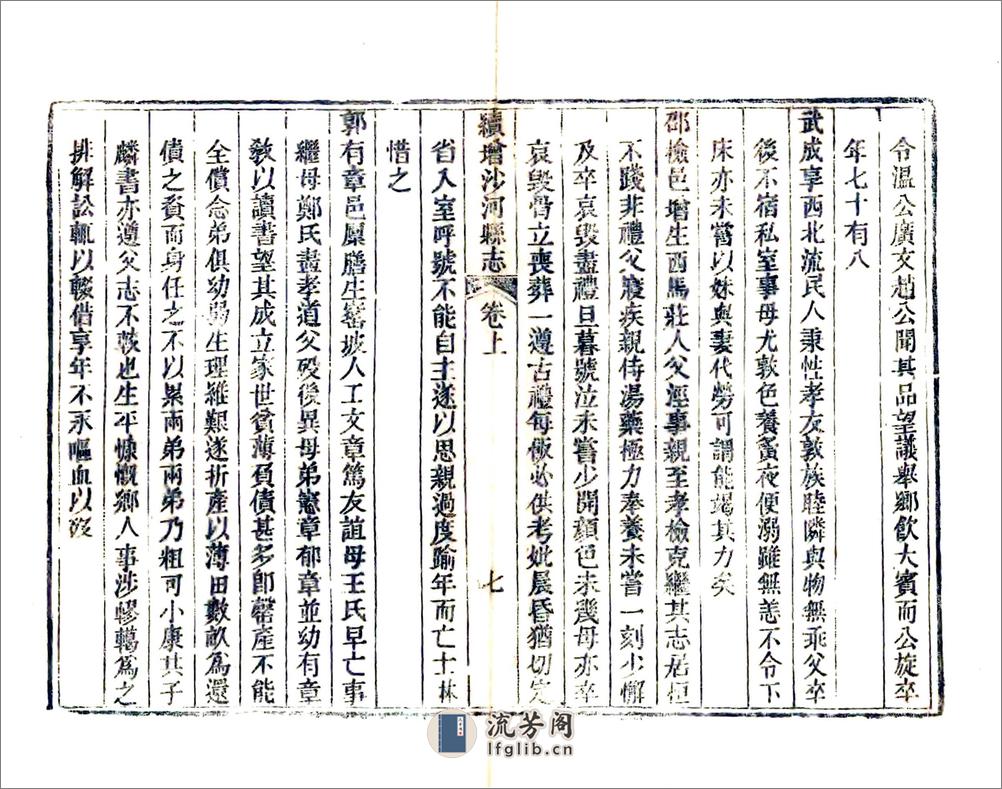 令溫公廣文趙公聞其品望議舉鄉飲大賓而公旋卒
年七十有八
武成享西北流民人秉性孝友敦族睦隣與物無乖父卒
後不宿私室事母尤敦色養蚤夜便溺雖無恙不令下
床亦未嘗以妹與妻代勞可謂能竭其力矣
邵檢邑增生西馬莊人父涇事親至孝檢克繼其志居恒
不踐非禮父寢疾親侍湯藥極力奉養未嘗一刻少懈
及卒哀毀盡禮旦暮號泣未嘗少開顏色未幾母亦卒
哀毀骨立喪葬一遵古禮每飯必供考妣晨昏猶切定
續增沙河縣志 卷上 七
省入室呼號不能自主遂以思親過度踰年而亡士林
惜之
郭有章邑廩膳生峦坡人工文章篤友誼母王氏早亡事
繼母鄭氏盡孝道父歿後異母弟憲章郁章並幼有章
教以讀書望其成立家世貧薄負債甚多即罄產不能
全償念弟俱幼弱生理維艱遂折產以薄田數畝爲還
債之資而身任之不以累兩弟兩弟乃粗可小康其子
麟書亦遵父志不較也生平慷慨鄉人事涉轇轕爲之
排解訟輒以輟借享年不永嘔血以歿
流芳阁
lfglib.cn